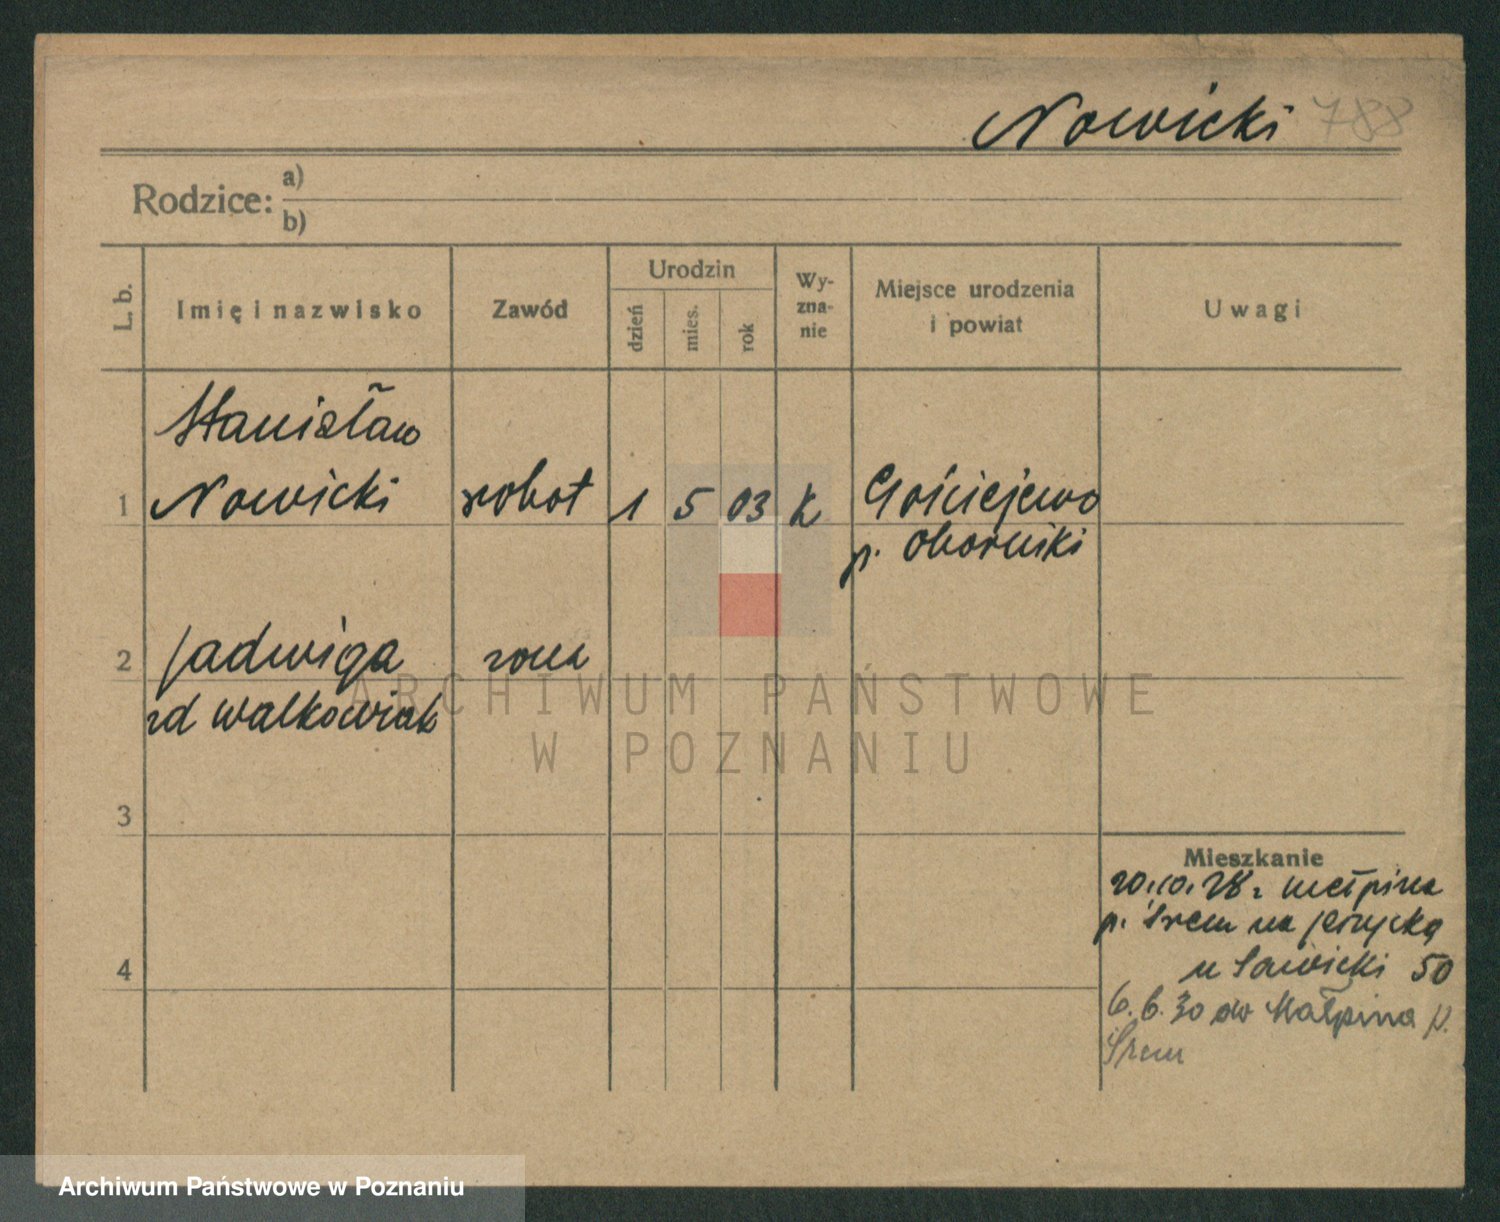 Nowicki 788
Rodzice: a)
b)
L. b.
Imię i nazwisko
Zawód
Urodzin
dzień
mies.
rok
Wy-
zna-
nie
Miejsce urodzenia
i powiat
Uwagi
Stanisław
1 Nowicki robot 1 5 03 k Gościejewo
p. Oborniki
2 Jadwiga żona
zd Walkowiak
3
4
Mieszkanie
20.10.28 z Małpina
p. Śrem na Jeżycką
u Sawicki 50
6.6.30 do Małpina p.
Śrem
ARCHIWUM PAŃSTWOWE
W POZNANIU
Archiwum Państwowe w Poznaniu